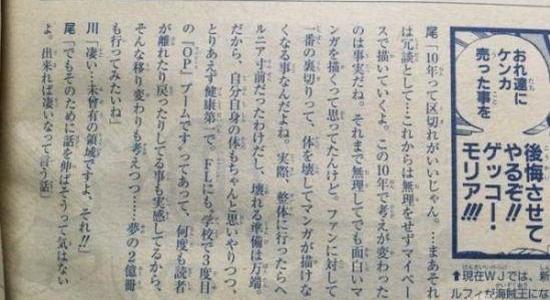 おれ達に
ケンカ
売った事を
後悔させて
やるぞ!!
ゲッコー・
モリア!!!
↑現在WJでは、
ルフィが海賊王にな
尾「10年って区切れがいいじゃん。…まあそれ
は冗談として…これからは無理をせずマイペー
スで描いていくよ。この10年で考えが変わった
のは事実だね。それまで無理してでも面白いマ
ンガを描くって思ってたんけど。ファンに対して
一番の裏切りって、体を壊してマンガが描けな
くなる事なんだよね。実際、整体に行ったらヘ
ルニア寸前だったわけだし、壊れる準備は万端。
だから、自分自身の体もちゃんと思いやりつつ、
とりあえず健康第一で。FLにも、学校で3度目
の『OP』ブームです ってあって、何度も読者
が離れたり戻ったりしてる事も実感してるから、
そんな移り変わりも考えつつ……夢の2億冊
も行ってみたいね」
川「凄い…未曾有の領域ですよ、それ!!」
尾「でもそのために話を伸ばそうって気はない
よ。出来れば凄いなって言う話」